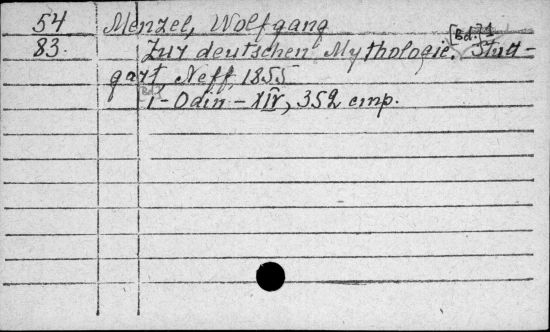 54 Menzel, Wolfgang
83. Zur deutschen Mythologie. [Bd. 1] Stutt-
gart, Neff, 1855
1 - Odin - XIV, 352 стр.